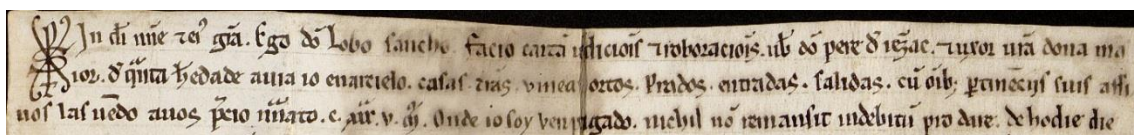 In di nne et ei' gra. Ego do Lobo sancho. facio carta udiciois et roboraciois. ub do pere d . et uxor ura dona ma
ior. d quta hedade auia io en arcielo. casas. tras. vinea ortos. Prados. entradas. salidas. cu oib; ptineciis suis assi
uos las uendo auos pcio nuato. c. xx. v. mr. Onde io soy ven pagado. nichil no remansit indebitu pro dare. de hodie die